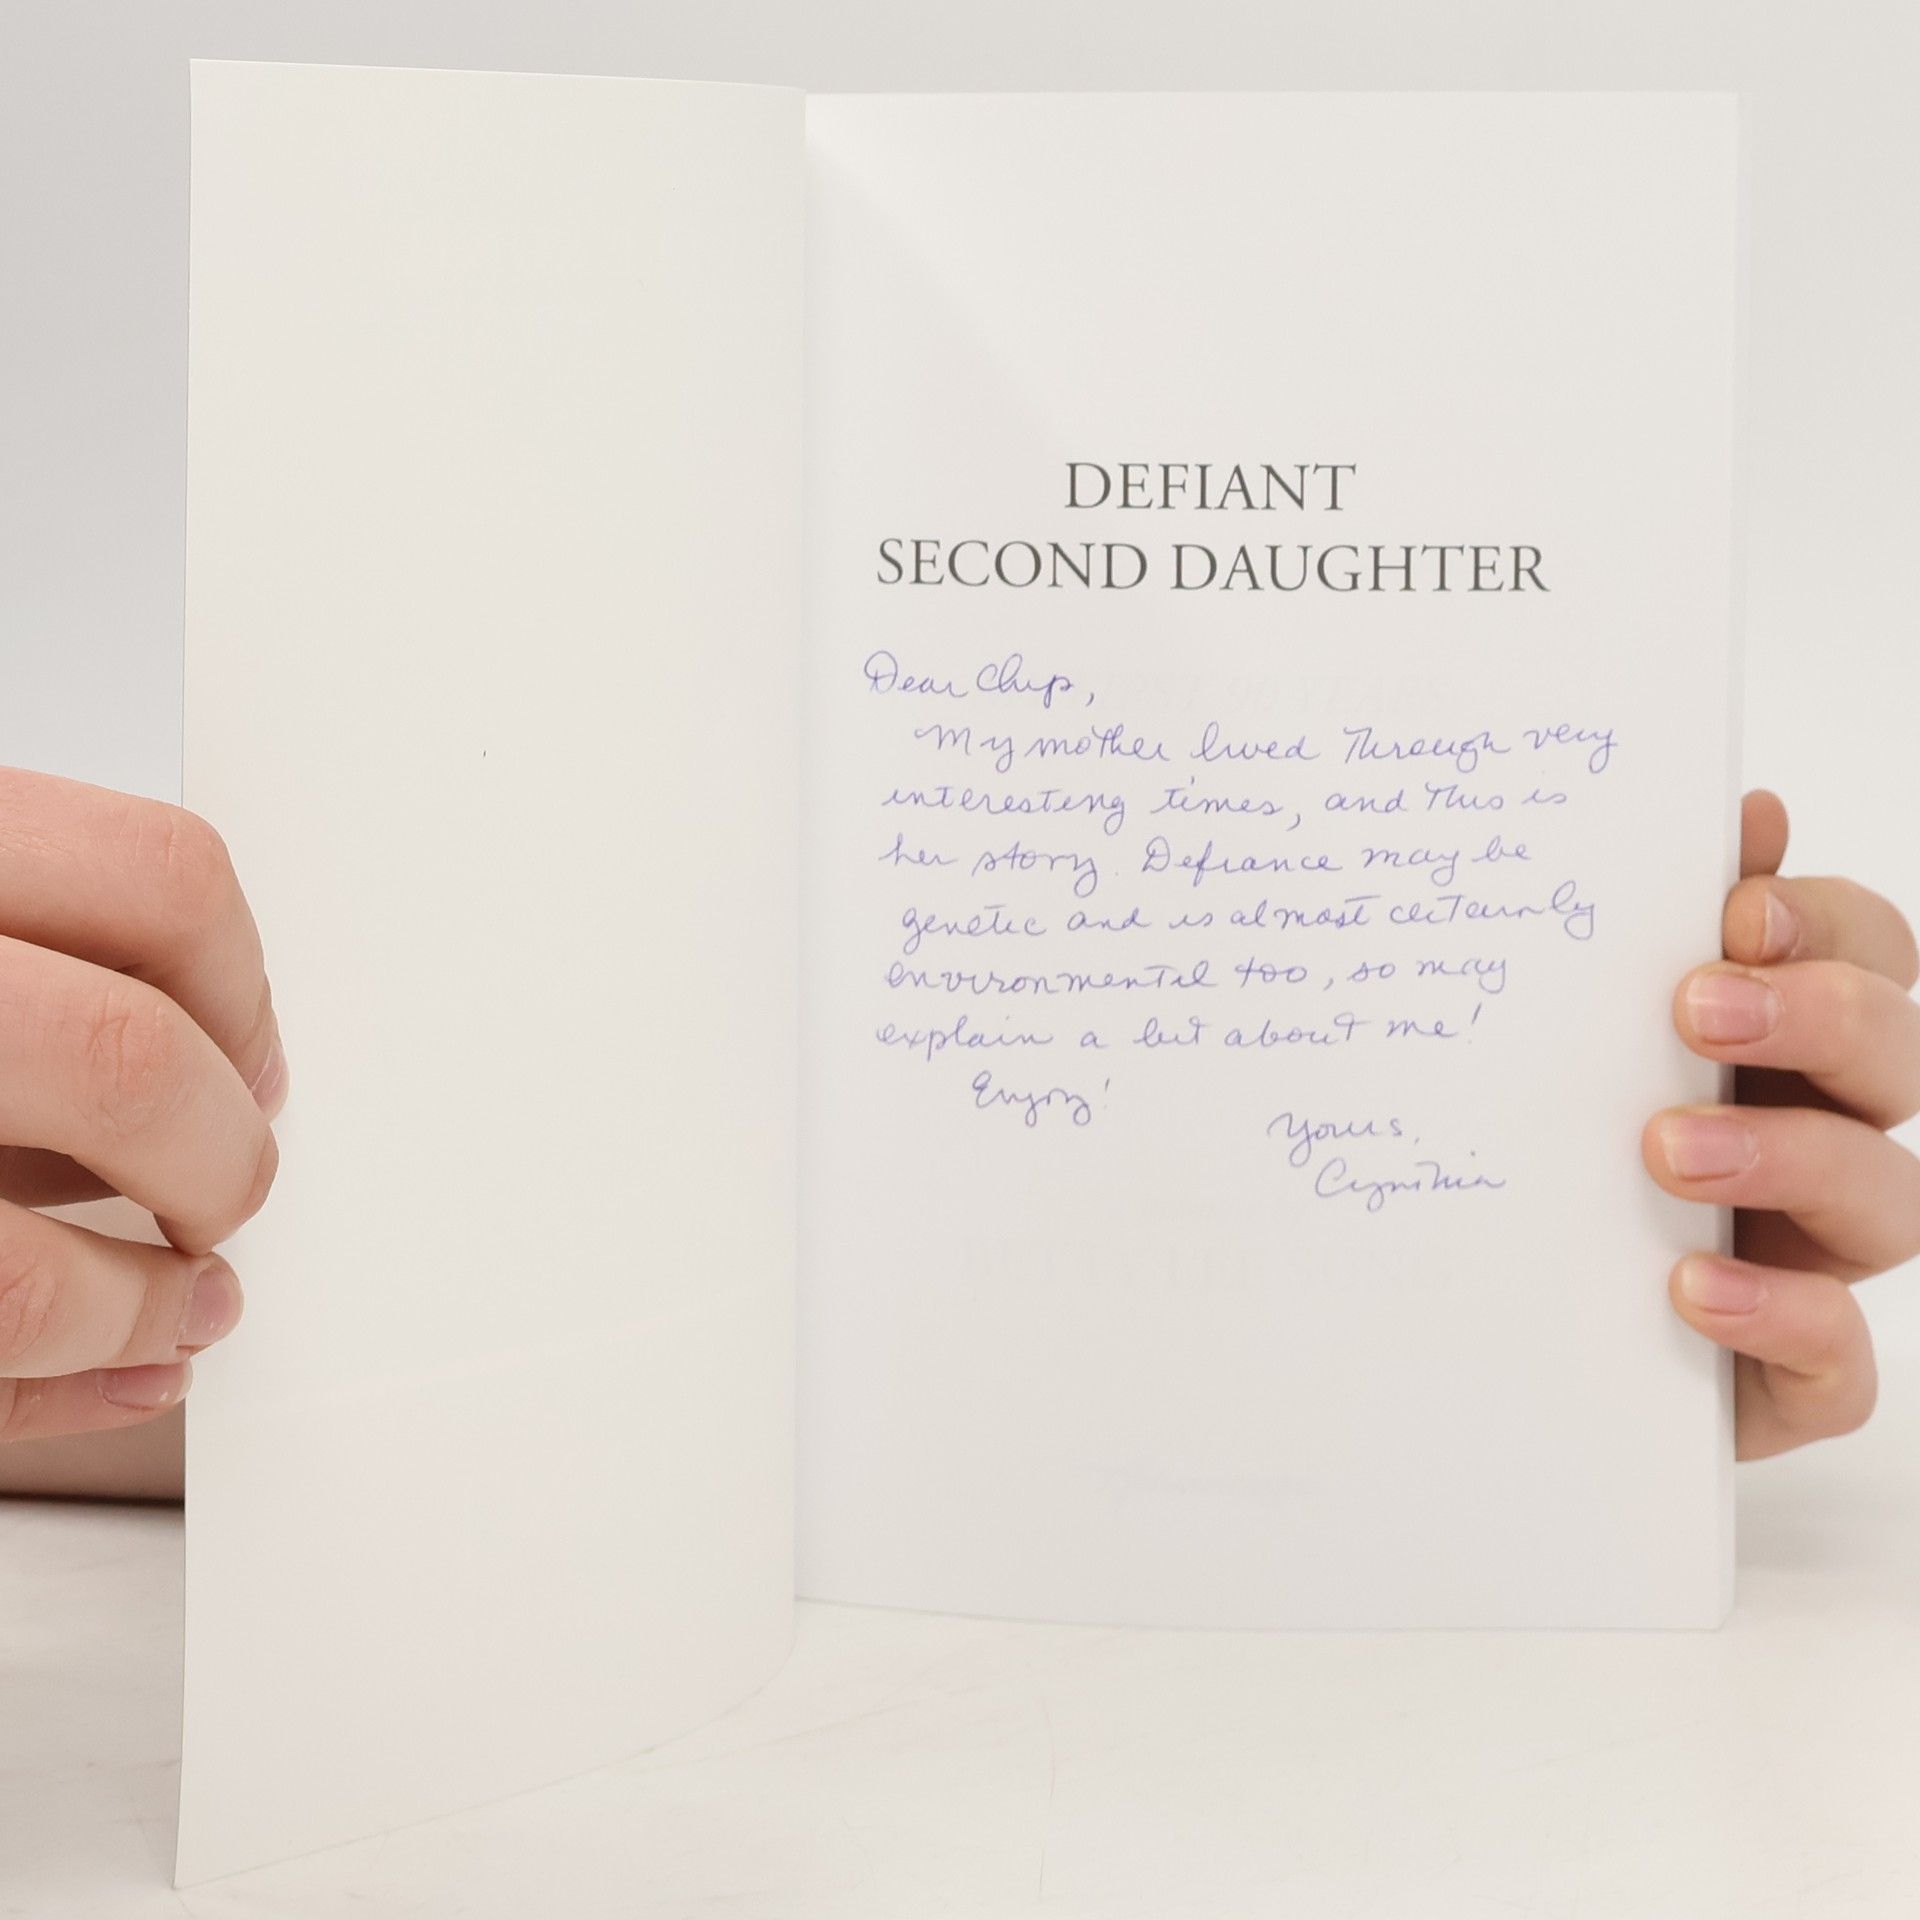 DEFIANT
SECOND DAUGHTER
Dear Chip,
My mother lived Through very
interesting times, and This is
her story. Defiance may be
genetic and is almost certainly
environmental too, so may
explain a bit about me!
Enjoy!
Yours,
Cynthia